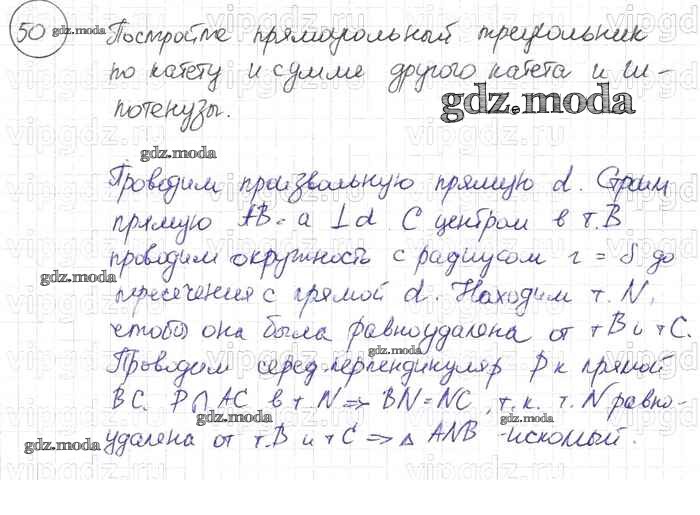 50 gdz.moda Постройте прямоугольный треугольник
по катету и сумме другого катета и ги-
потенузы.
gdz.moda
gdz.moda
Проводим произвольную прямую d. Строим
прямую AB = a ⊥ d. С центром в т. B
проводим окружность с радиусом r = S до
gdz.moda
пересечения с прямой d. Находим т. N,
чтобы она была равноудалена от т B и т C.
gdz.moda
Проводим серед. перпендикуляр P к прямой
BC. P ∩ AC в т N => BN = NC, т. к. т. N равно-
gdz.moda gdz.moda
удалена от т. B и т C => △ ANB - искомый.
gdz.moda gdz.moda